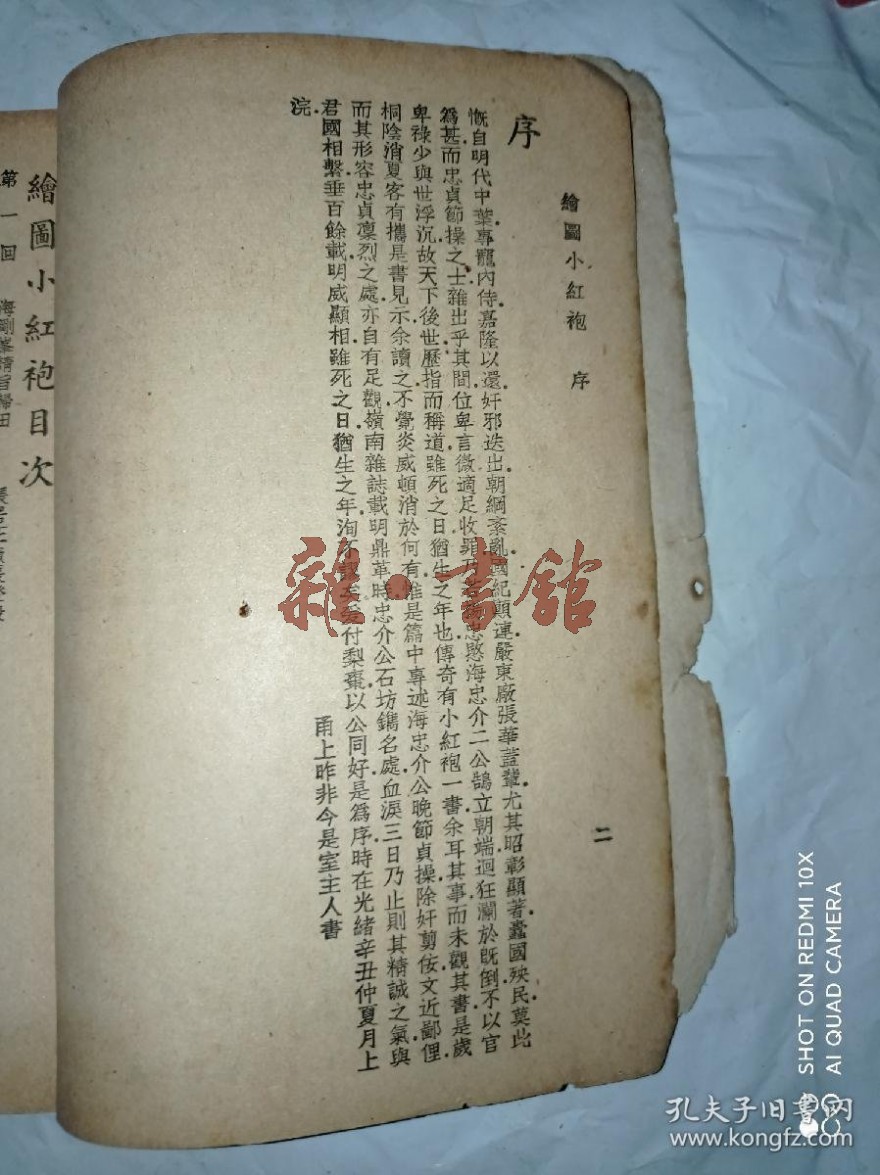 繪圖小紅袍 序
二
序
慨自明代中葉專寵內侍嘉隆以還奸邪迭出朝綱紊亂國紀顛連嚴東廠張華亭輩尤其昭彰顯著蠹國殃民莫此
爲甚而忠貞節操之士雜出乎其間位卑言微適足收罪乃若 忠愍海忠介二公鵠立朝端迴狂瀾於既倒不以官
卑祿少與世浮沉故天下後世歷指而稱道雖死之日猶生之年也傳奇有小紅袍一書余耳其事而未觀其書是歲
桐陰消夏客有攜是書見示余讀之不覺炎威頓消於何有惟是篇中專述海忠介公晚節貞操除奸剪佞文近鄙俚
而其形容忠貞凛烈之處亦自有足觀嶺南雜誌載明鼎革時忠介公石坊鐫名處血淚三日乃止則其精誠之氣與
君國相繫垂百餘載明威顯相雖死之日猶生之年洵不 付梨棗以公同好是爲序時在光緒辛丑仲夏月上
浣
甬上昨非今是室主人書
繪圖小紅袍目次
第一回 海剛峯請旨歸田
雜·書館
SHOT ON REDMI 10X
AI QUAD CAMERA
孔夫子旧書网
www.kongfz.com